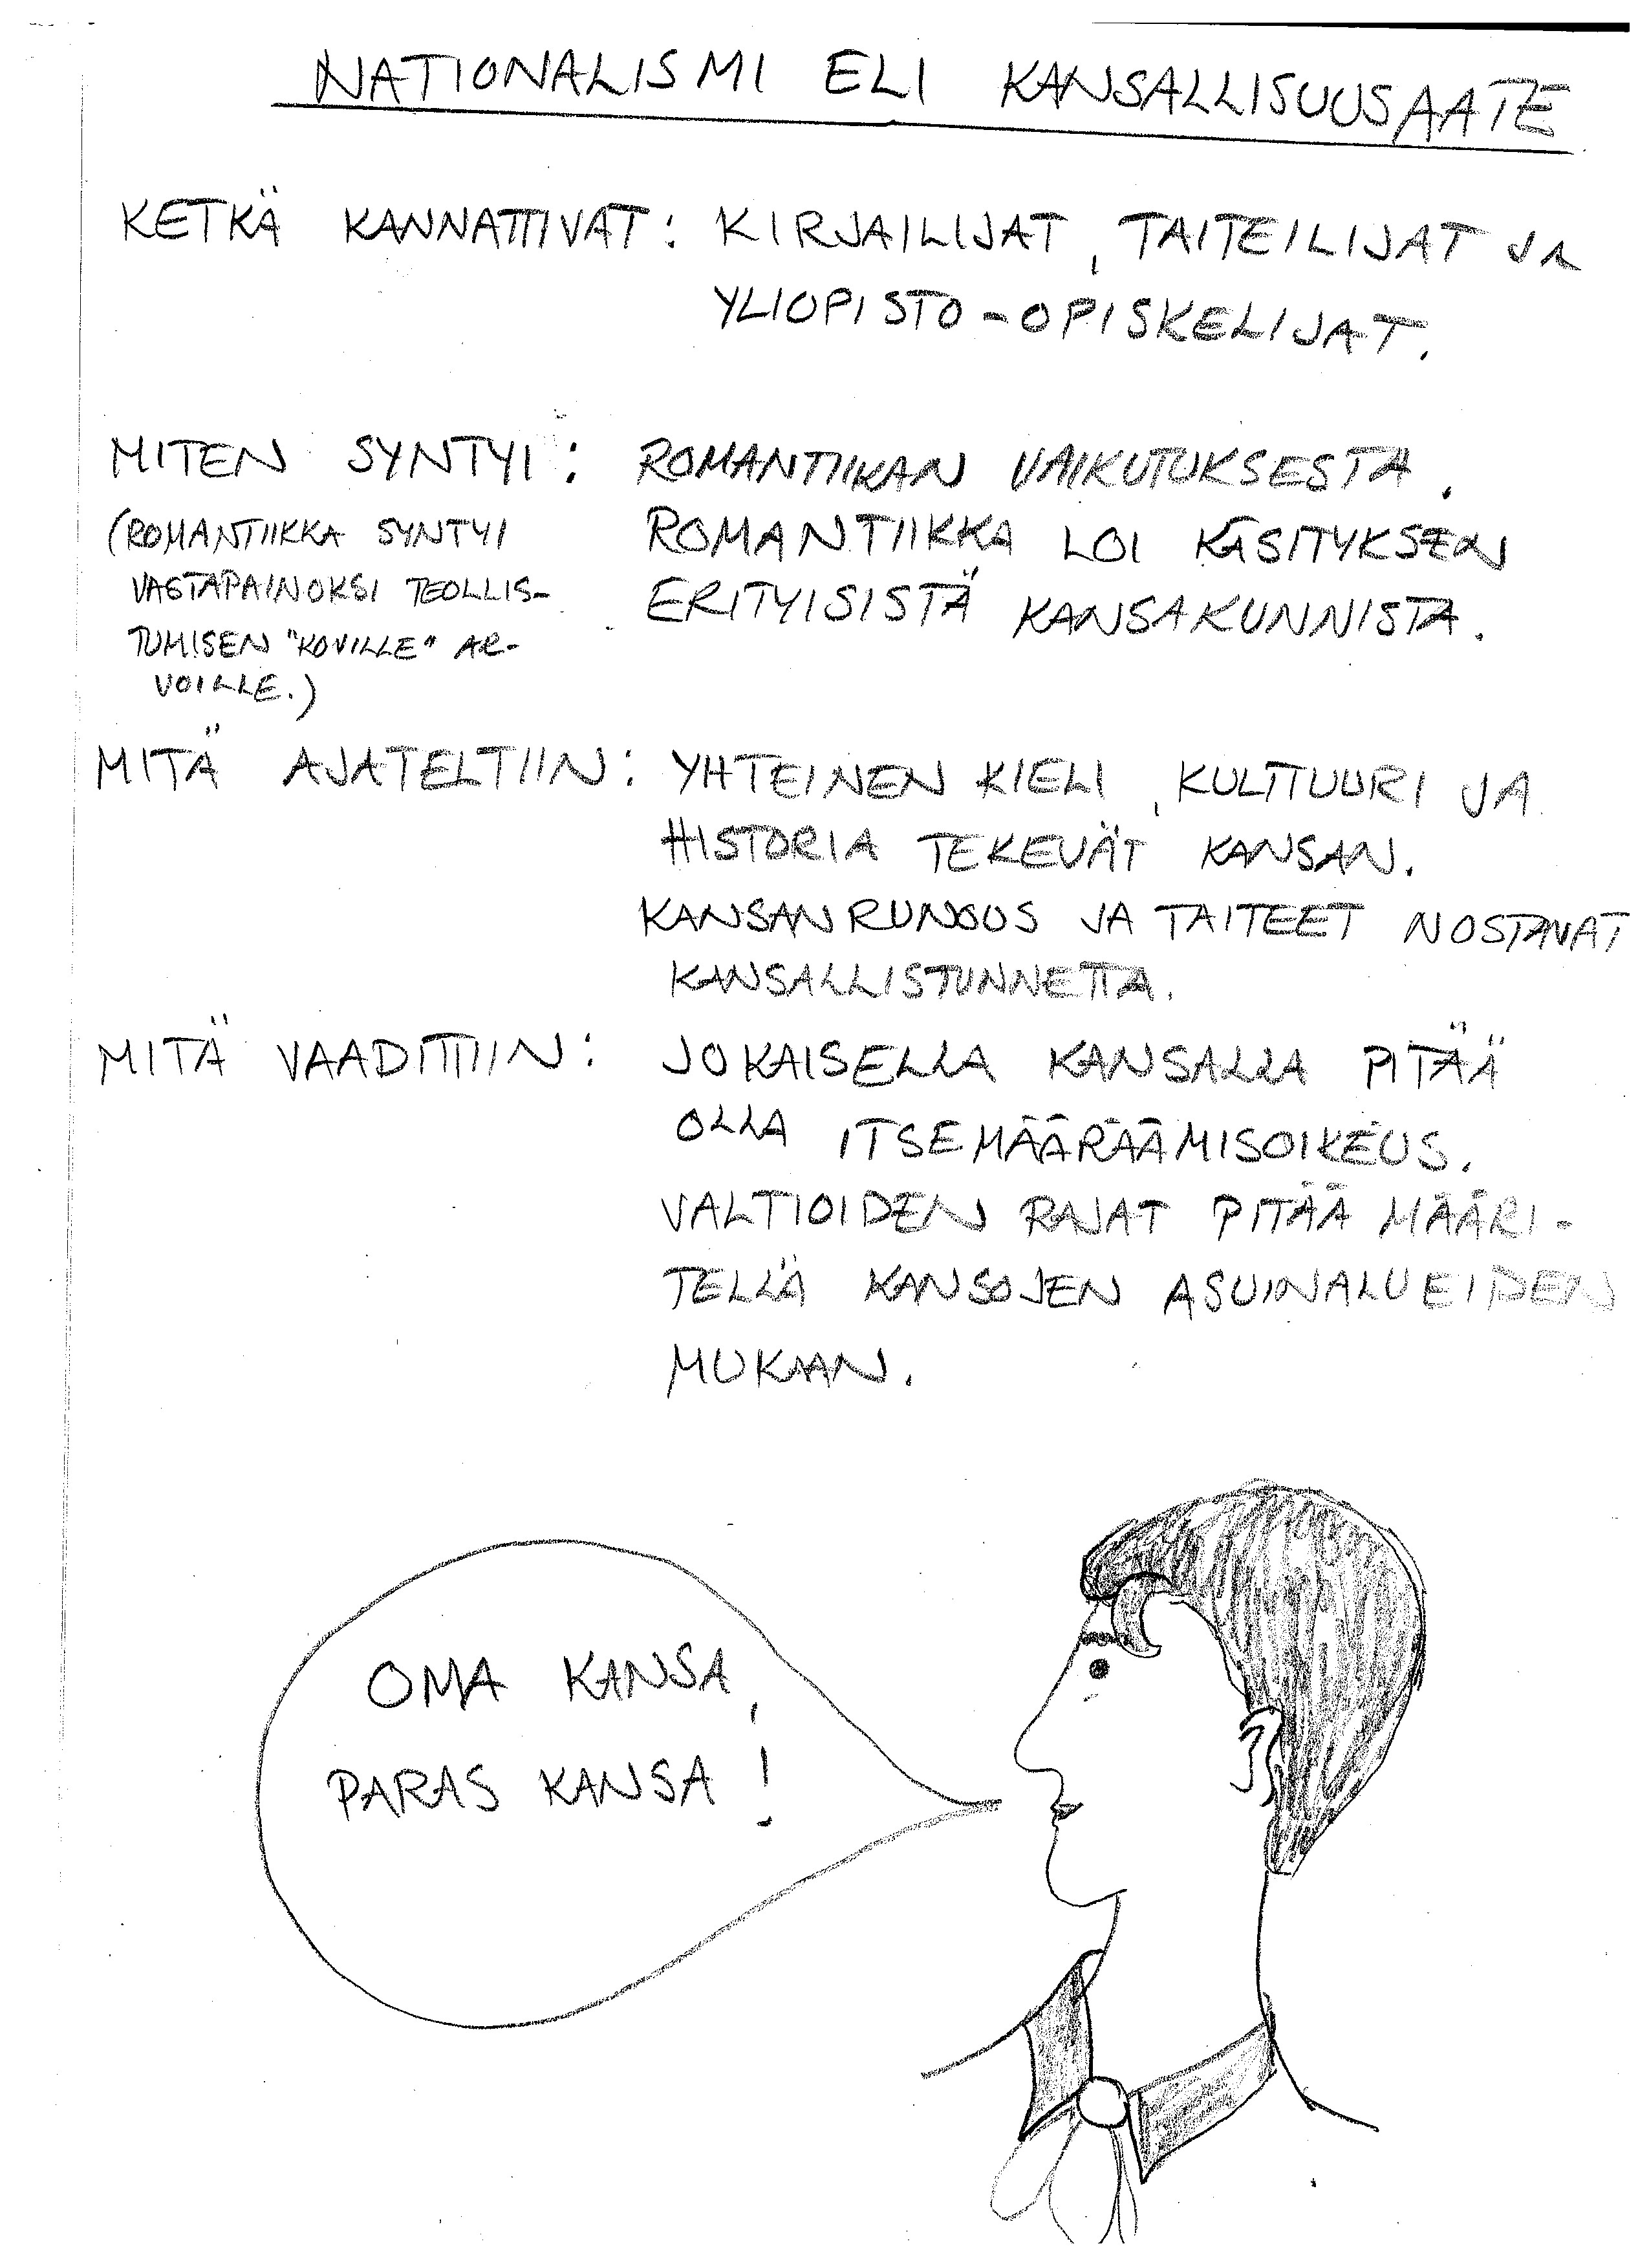 NATIONALISMI ELI KANSALLISUUSAATE
KETKÄ KANNATTIVAT: KIRJAILIJAT, TAITEILIJAT JA
YLIOPISTO-OPISKELIJAT.
MITEN SYNTYI: ROMANTIIKAN VAIKUTUKSESTA.
ROMANTIIKKA LOI KÄSITYKSEN
ERITYISISTÄ KANSAKUNNISTA.
(ROMANTIIKKA SYNTYI
VASTAPAINOKSI TEOLLIS-
TUMISEN "KOVILLE" AR-
VOILLE.)
MITÄ AJATELTIIN: YHTEINEN KIELI, KULTTUURI JA
HISTORIA TEKEVÄT KANSAN.
KANSANRUNOUS JA TAITEET NOSTAVAT
KANSALLISTUNNETTA.
MITÄ VAADITTIIN: JOKAISELLA KANSALLA PITÄÄ
OLLA ITSEMÄÄRÄÄMISOIKEUS.
VALTIOIDEN RAJAT PITÄÄ MÄÄRI-
TELLÄ KANSOJEN ASUINALUEIDEN
MUKAAN.
OMA KANSA,
PARAS KANSA!